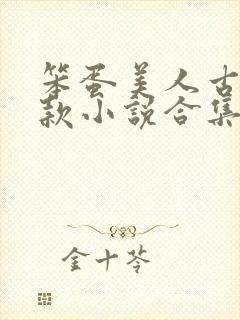 笨蛋美人古
款小说合集
金十苓